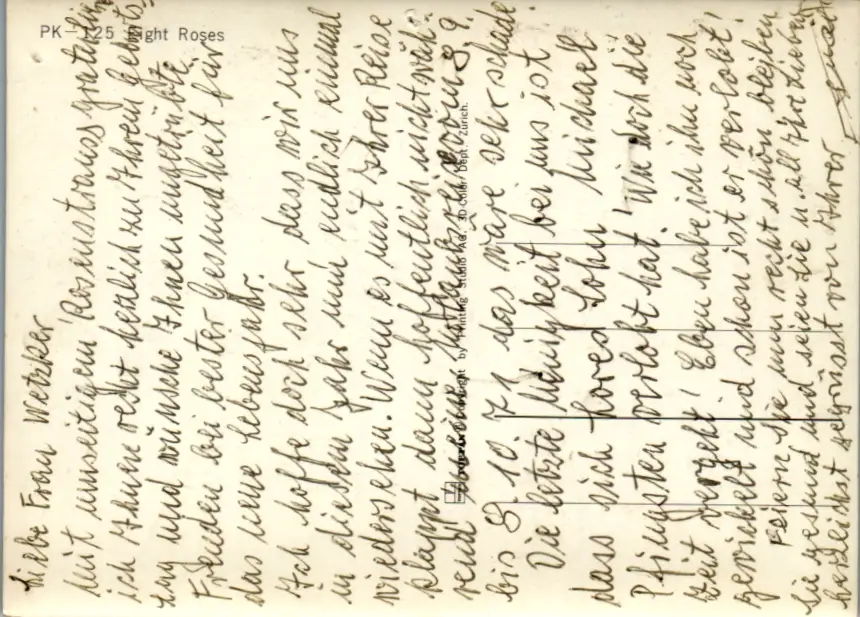 PK-125 Eight Roses
Liebe Frau Metzker
Mit umseitigem Rosenstrauss gratulier
ich Ihnen recht herzlich zu Ihrem Geburts-
tag und wünsche Ihnen ungetrübte
Freuden bei bester Gesundheit für
das neue Lebensjahr.
Ich hoffe doch sehr dass wir uns
in diesem Jahr nun endlich einmal
wiedersehen. Wenn es mit Ihrer Reise
klappt dann hoffentlich nicht wäh-
rend vom 8. 9.
bis 8. 10 71 das wäre sehr schade.
Die letzte Neuigkeit bei uns ist
dass sich Lores Sohn Michael
Pfingsten verlobt hat! Wie doch die
Zeit vergeht! Eben habe ich ihn noch
gewickelt und schon ist er verlobt!
Feiern Sie nun recht schön bleiben
Sie gesund und seien Sie u. all Ihre Lieben
herzlichst gegrüsst von Ihrer
Copyright by Printing Studio AG. 3D Color Dept. Zürich.